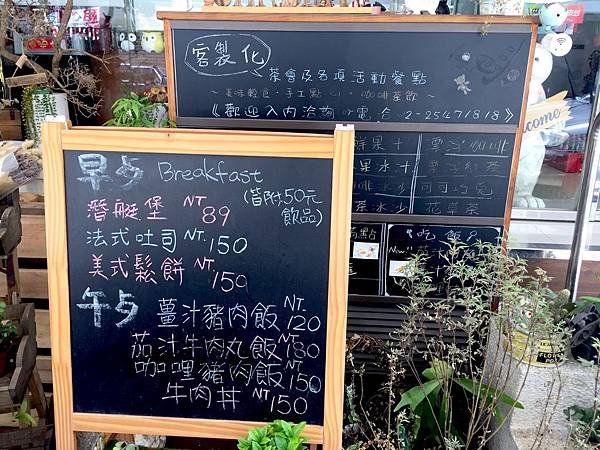 客製化
茶會及各項活動餐點
～美味輕食．手工點心．咖啡茶飲～
《歡迎入內洽詢 電洽 2-25471818》
鮮果汁
果冰汁
冰沙
茶冰沙
栗子紅茶
可可巧克
花草茶
吃飯
New
早与 Breakfast
(皆附50元飲品)
潛艇堡 NT 89
法式吐司 NT.150
美式鬆餅 NT.159
午与 薑汁豬肉飯 NT.120
茄汁牛肉丸飯 NT.180
咖哩豬肉飯 NT.150
牛肉丼 NT.150
come